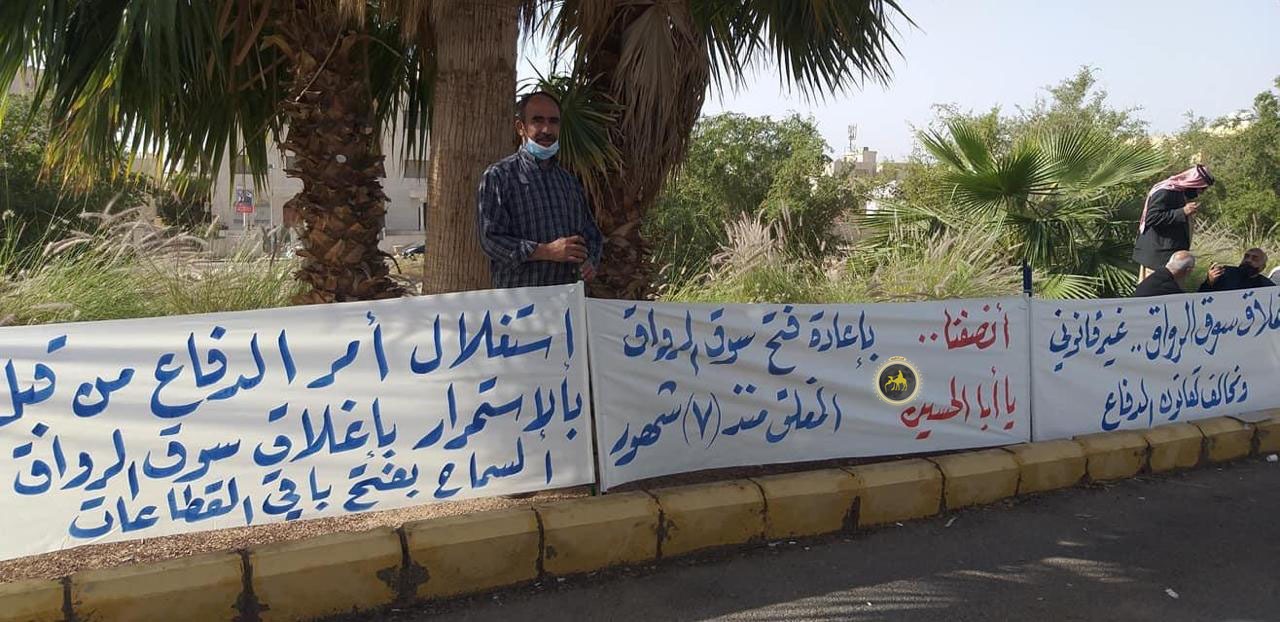 إغلاق سوق الرواق.. غير قانوني
ومخالف لقانون الدفاع
أنصفنا.. بإعادة فتح سوق الرواق
يا أبا الحسين المغلق منذ (٧) شهور
استغلال أمر الدفاع من قبل
بالاستمرار بإغلاق سوق الرواق
السماح بفتح باقي القطاعات